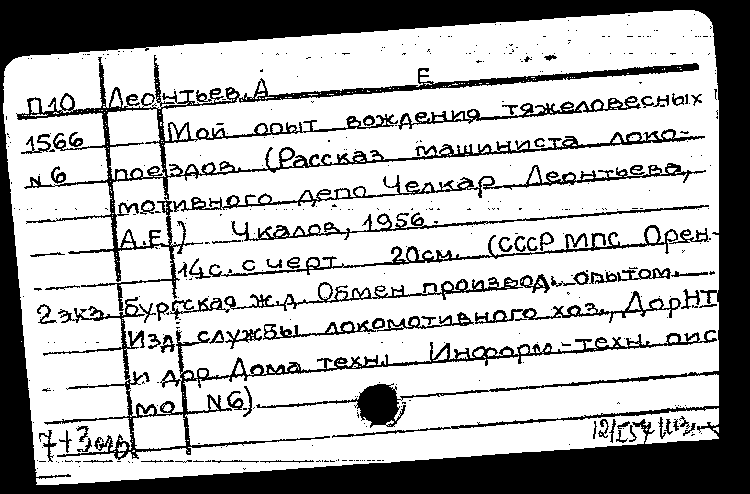 П10 Леонтьев, А Е
1566 Мой опыт вождения тяжеловесных
N6 поездов. (Рассказ машиниста локо-
мотивного депо Челкар Леонтьева,
А.Е.) Чкалов, 1956.
14с. с черт. 20см. (СССР МПС Орен-
2экз. бургская ж.д. Обмен производ. опытом.
Изд. службы локомотивного хоз., ДорНТ
и дор. Дома техн. Информ.-техн. пис
мо N6).